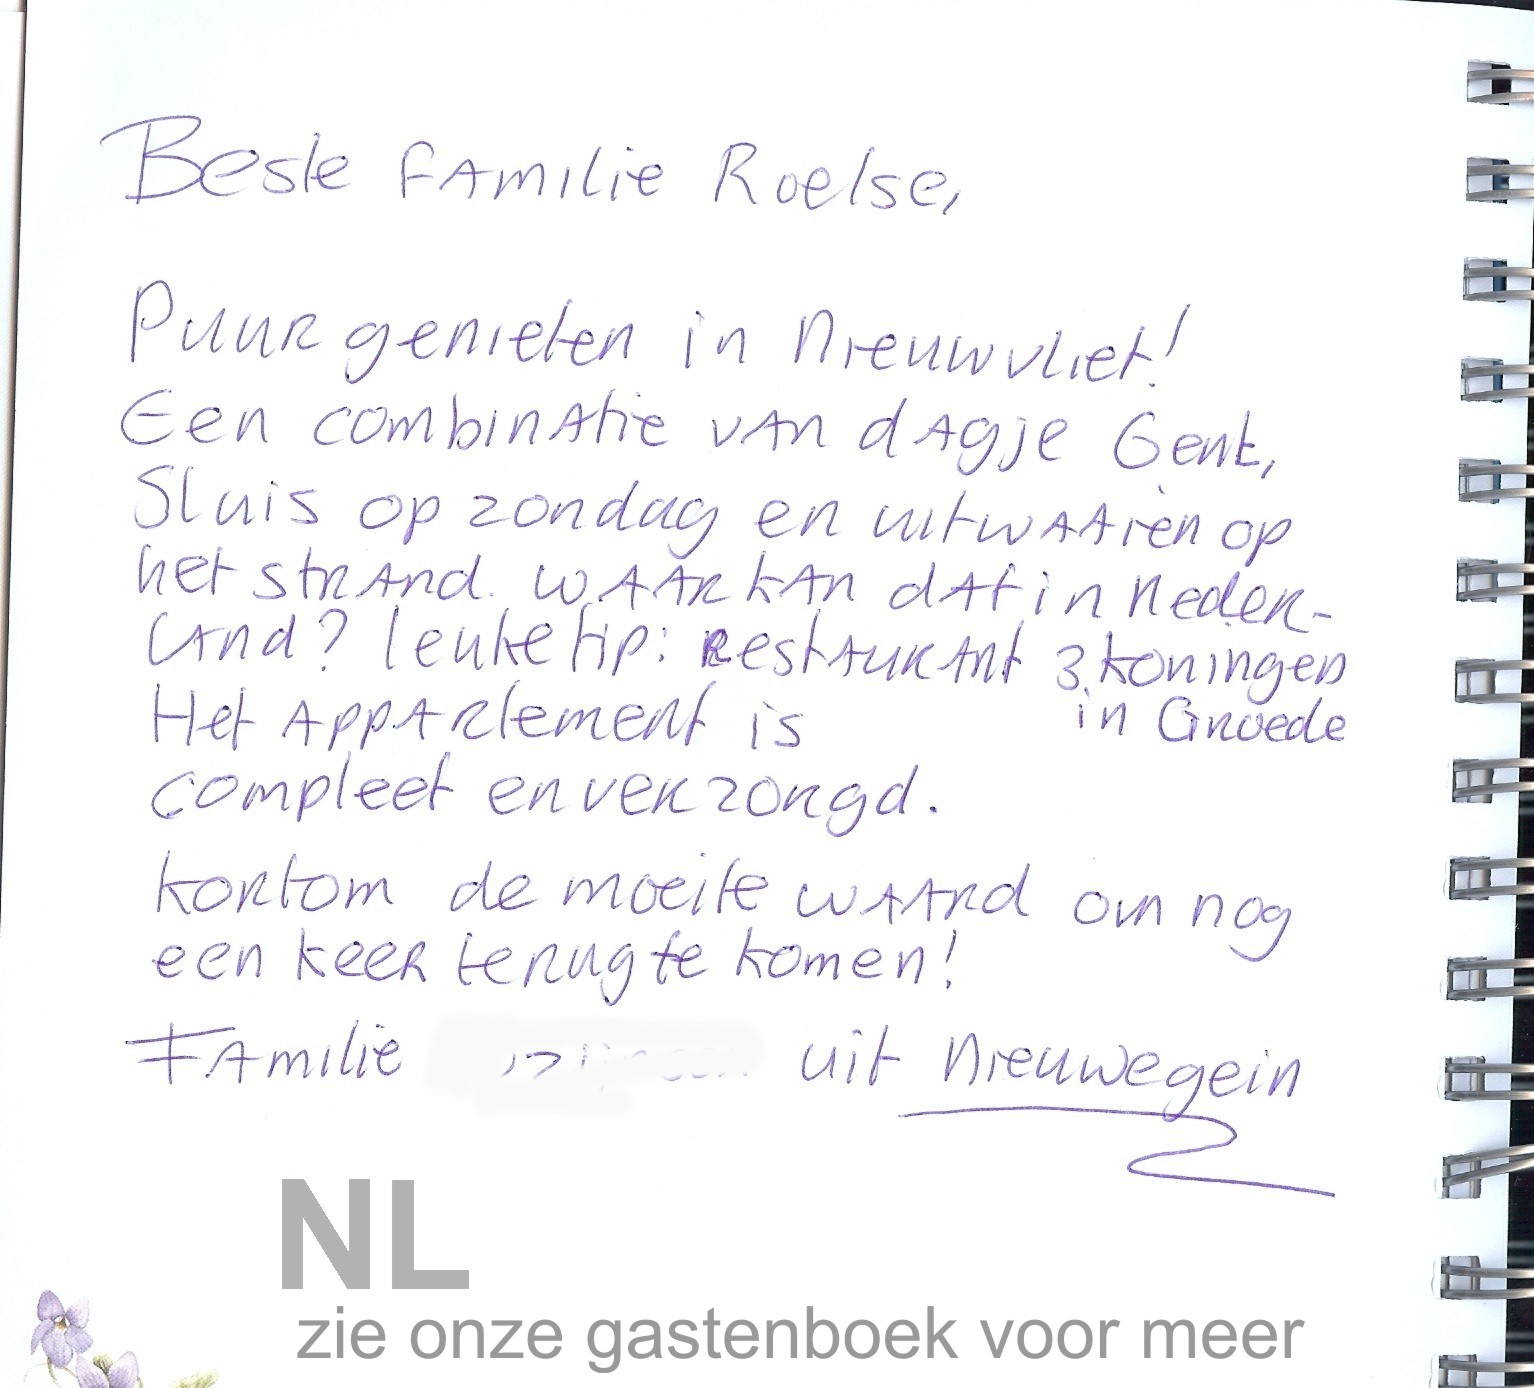 Beste Familie Roelse,
Puur genieten in Nieuwvliet!
Een combinatie van dagje Gent,
Sluis op zondag en uitwaaien op
het strand. Waar kan dat in Neder-
land? Leuke tip: Restaurant 3 koningen
in Groede
Het appartement is
compleet en verzorgd.
Kortom de moeite waard om nog
een keer terug te komen!
Familie uit Nieuwegein
NL
zie onze gastenboek voor meer